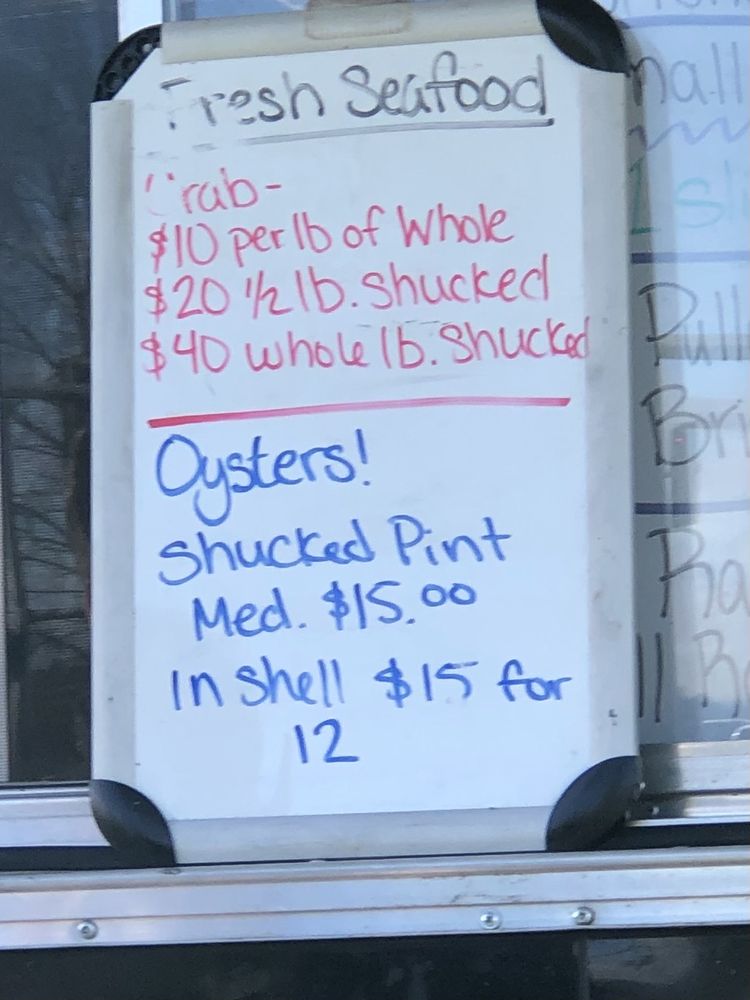 Fresh Seafood
Crab-
$10 per lb of Whole
$20 1/2 lb. Shucked
$40 whole lb. Shucked
Oysters!
Shucked Pint
Med. $15.00
In Shell $15 for
12